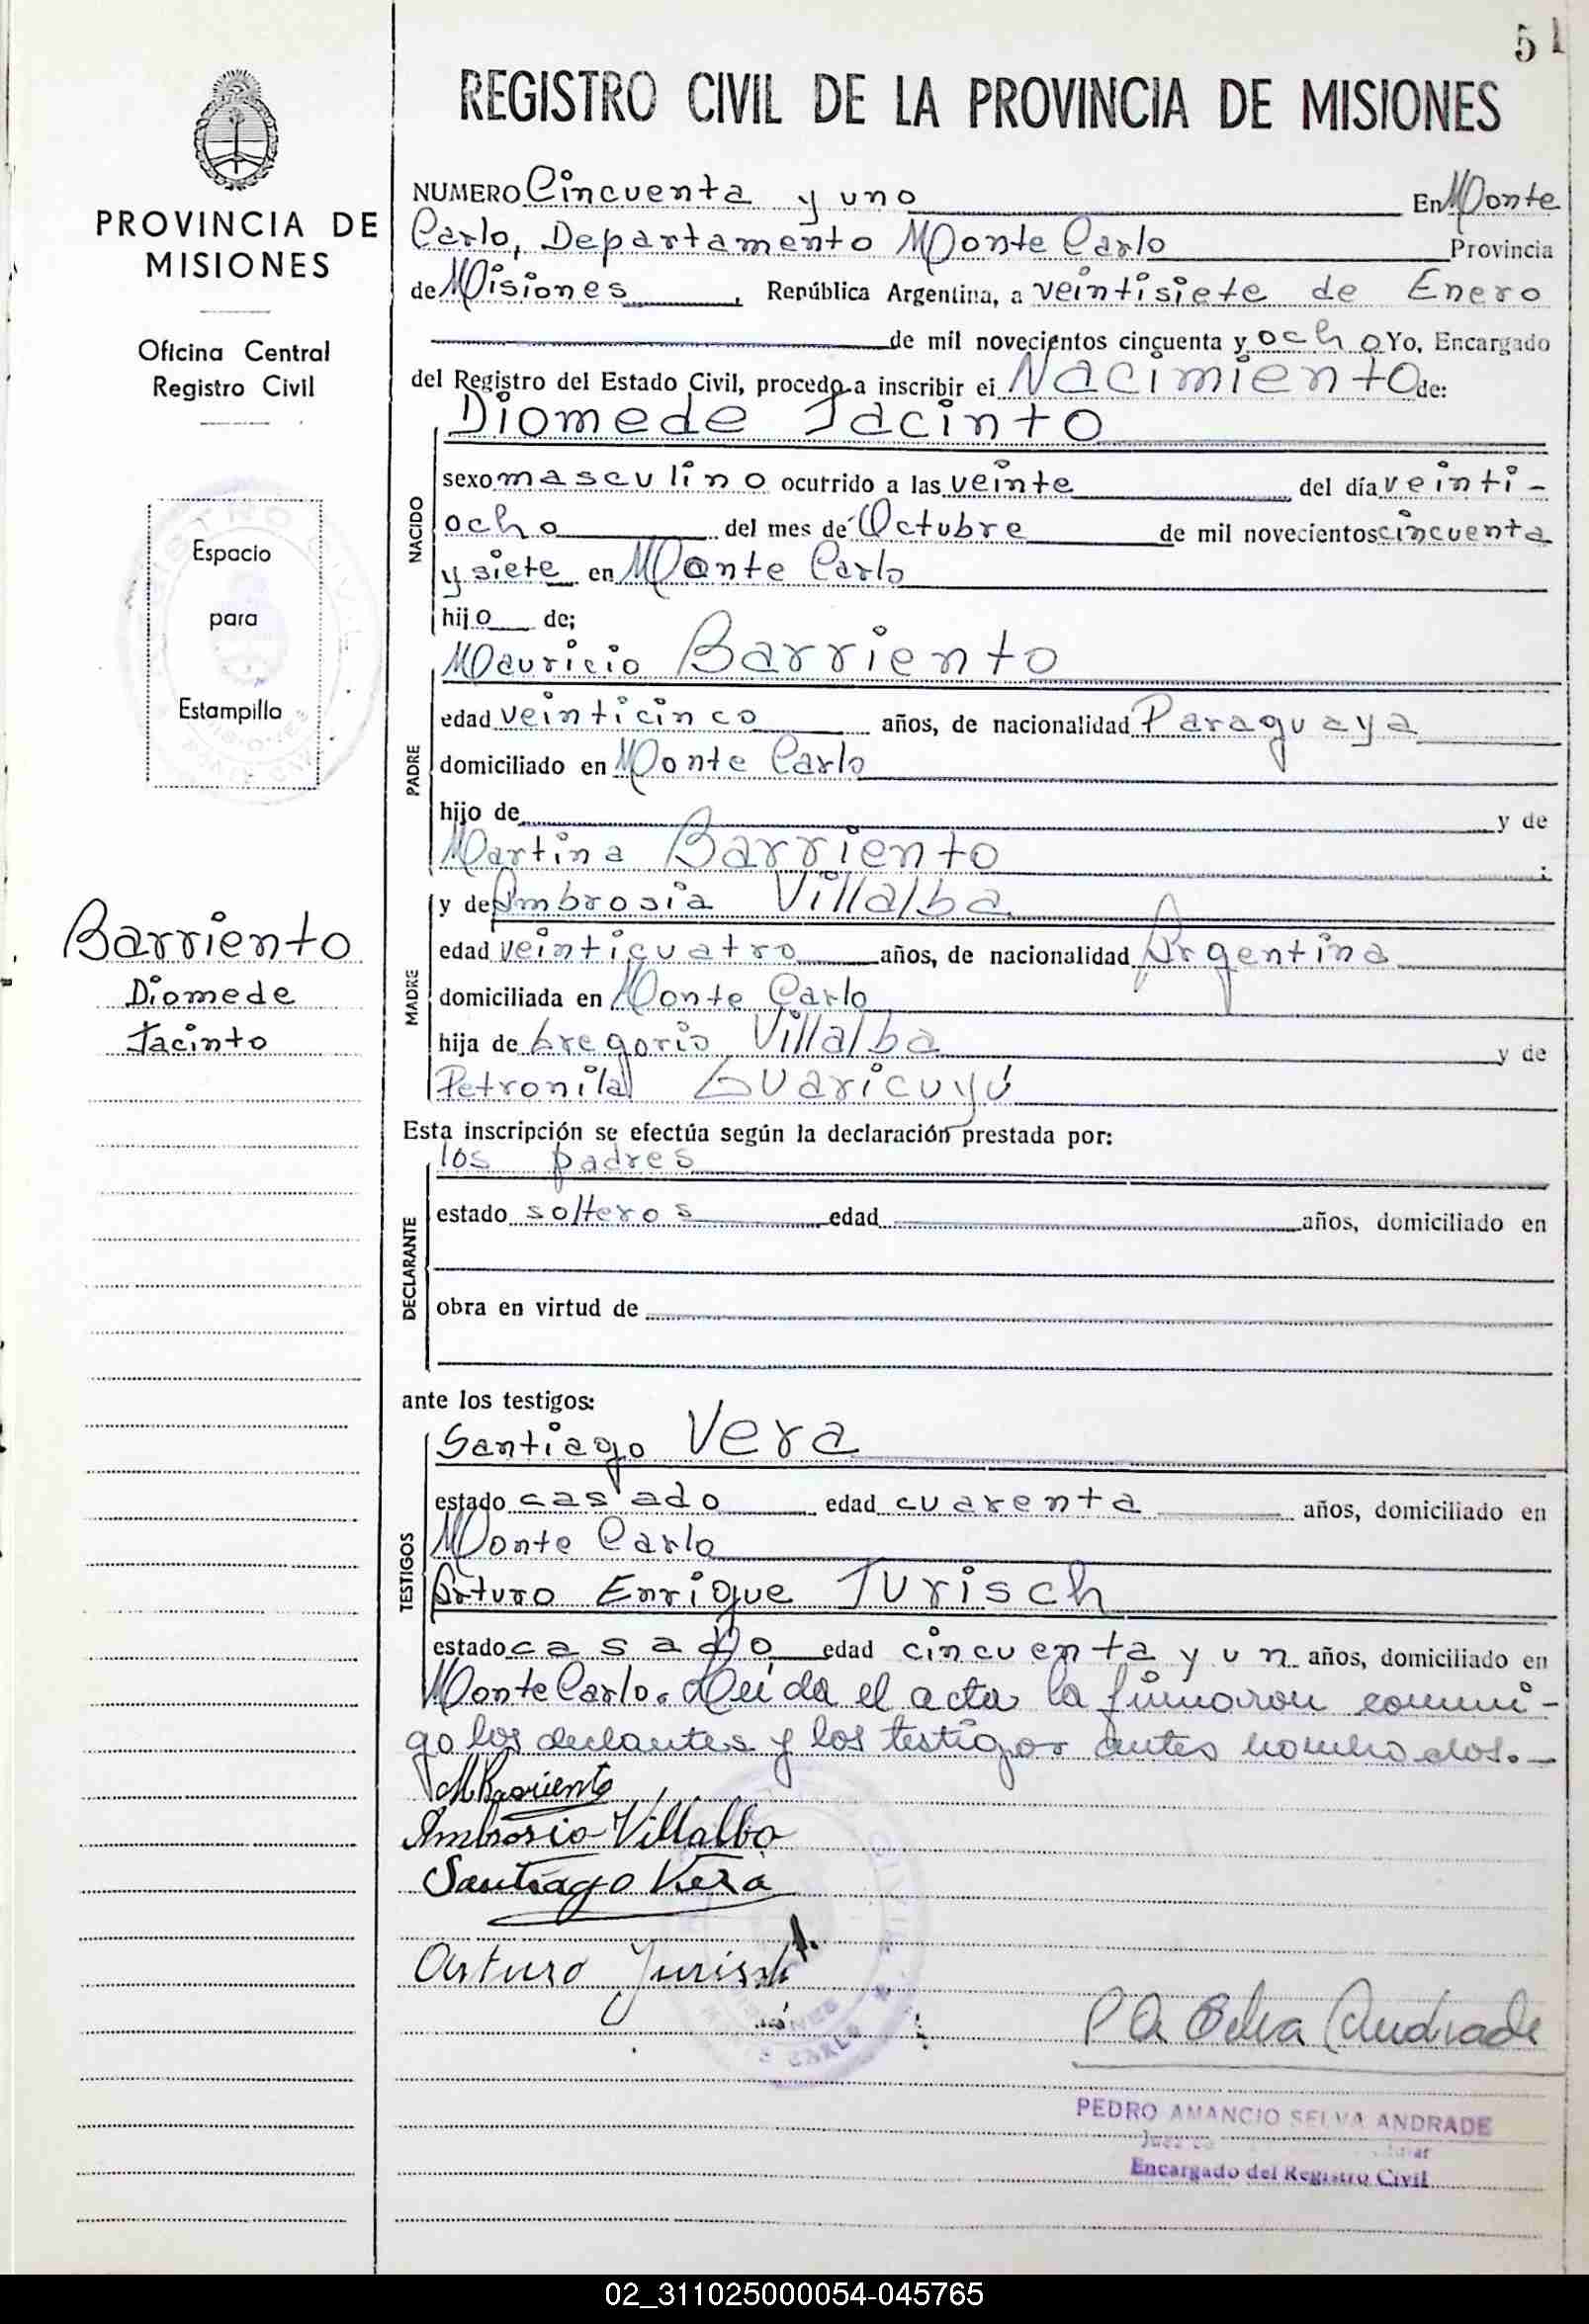 51
REGISTRO CIVIL DE LA PROVINCIA DE MISIONES
PROVINCIA DE
MISIONES
Oficina Central
Registro Civil
Espacio
para
Estampilla
Barriento
Diomede
Jacinto
NUMERO Cincuenta y uno En Monte
Carlo, Departamento Monte Carlo Provincia
de Misiones, República Argentina, a veintisiete de Enero
de mil novecientos cincuenta y ocho Yo, Encargado
del Registro del Estado Civil, procedo a inscribir el Nacimiento de:
Diomede Jacinto
NACIDO
sexo masculino ocurrido a las veinte del día veinti-
ocho del mes de Octubre de mil novecientos cincuenta
y siete en Monte Carlo
hijo de;
Mauricio Barriento
PADRE
edad veinticinco años, de nacionalidad Paraguaya
domiciliado en Monte Carlo
hijo de y de
Martina Barriento ;
y de Ambrosia Villalba
MADRE
edad veinticuatro años, de nacionalidad Argentina
domiciliada en Monte Carlo
hija de Gregorio Villalba y de
Petronila Guaricuyú
Esta inscripción se efectúa según la declaración prestada por:
los padres
DECLARANTE
estado solteros edad años, domiciliado en
obra en virtud de
ante los testigos:
Santiago Vera
TESTIGOS
estado casado edad cuarenta años, domiciliado en
Monte Carlo
Arturo Enrique Jurisch
estado casado, edad cincuenta y un años, domiciliado en
Monte Carlo. Leída el acta la firmaron conmi-
go los declantes y los testigos antes nombrados.-
M Barriento
Ambrosia Villalba
Santiago Vera
Arturo Jurisch
P A Selva Andrade
PEDRO AMANCIO SELVA ANDRADE
Juez
Encargado del Registro Civil
02_311025000054-045765